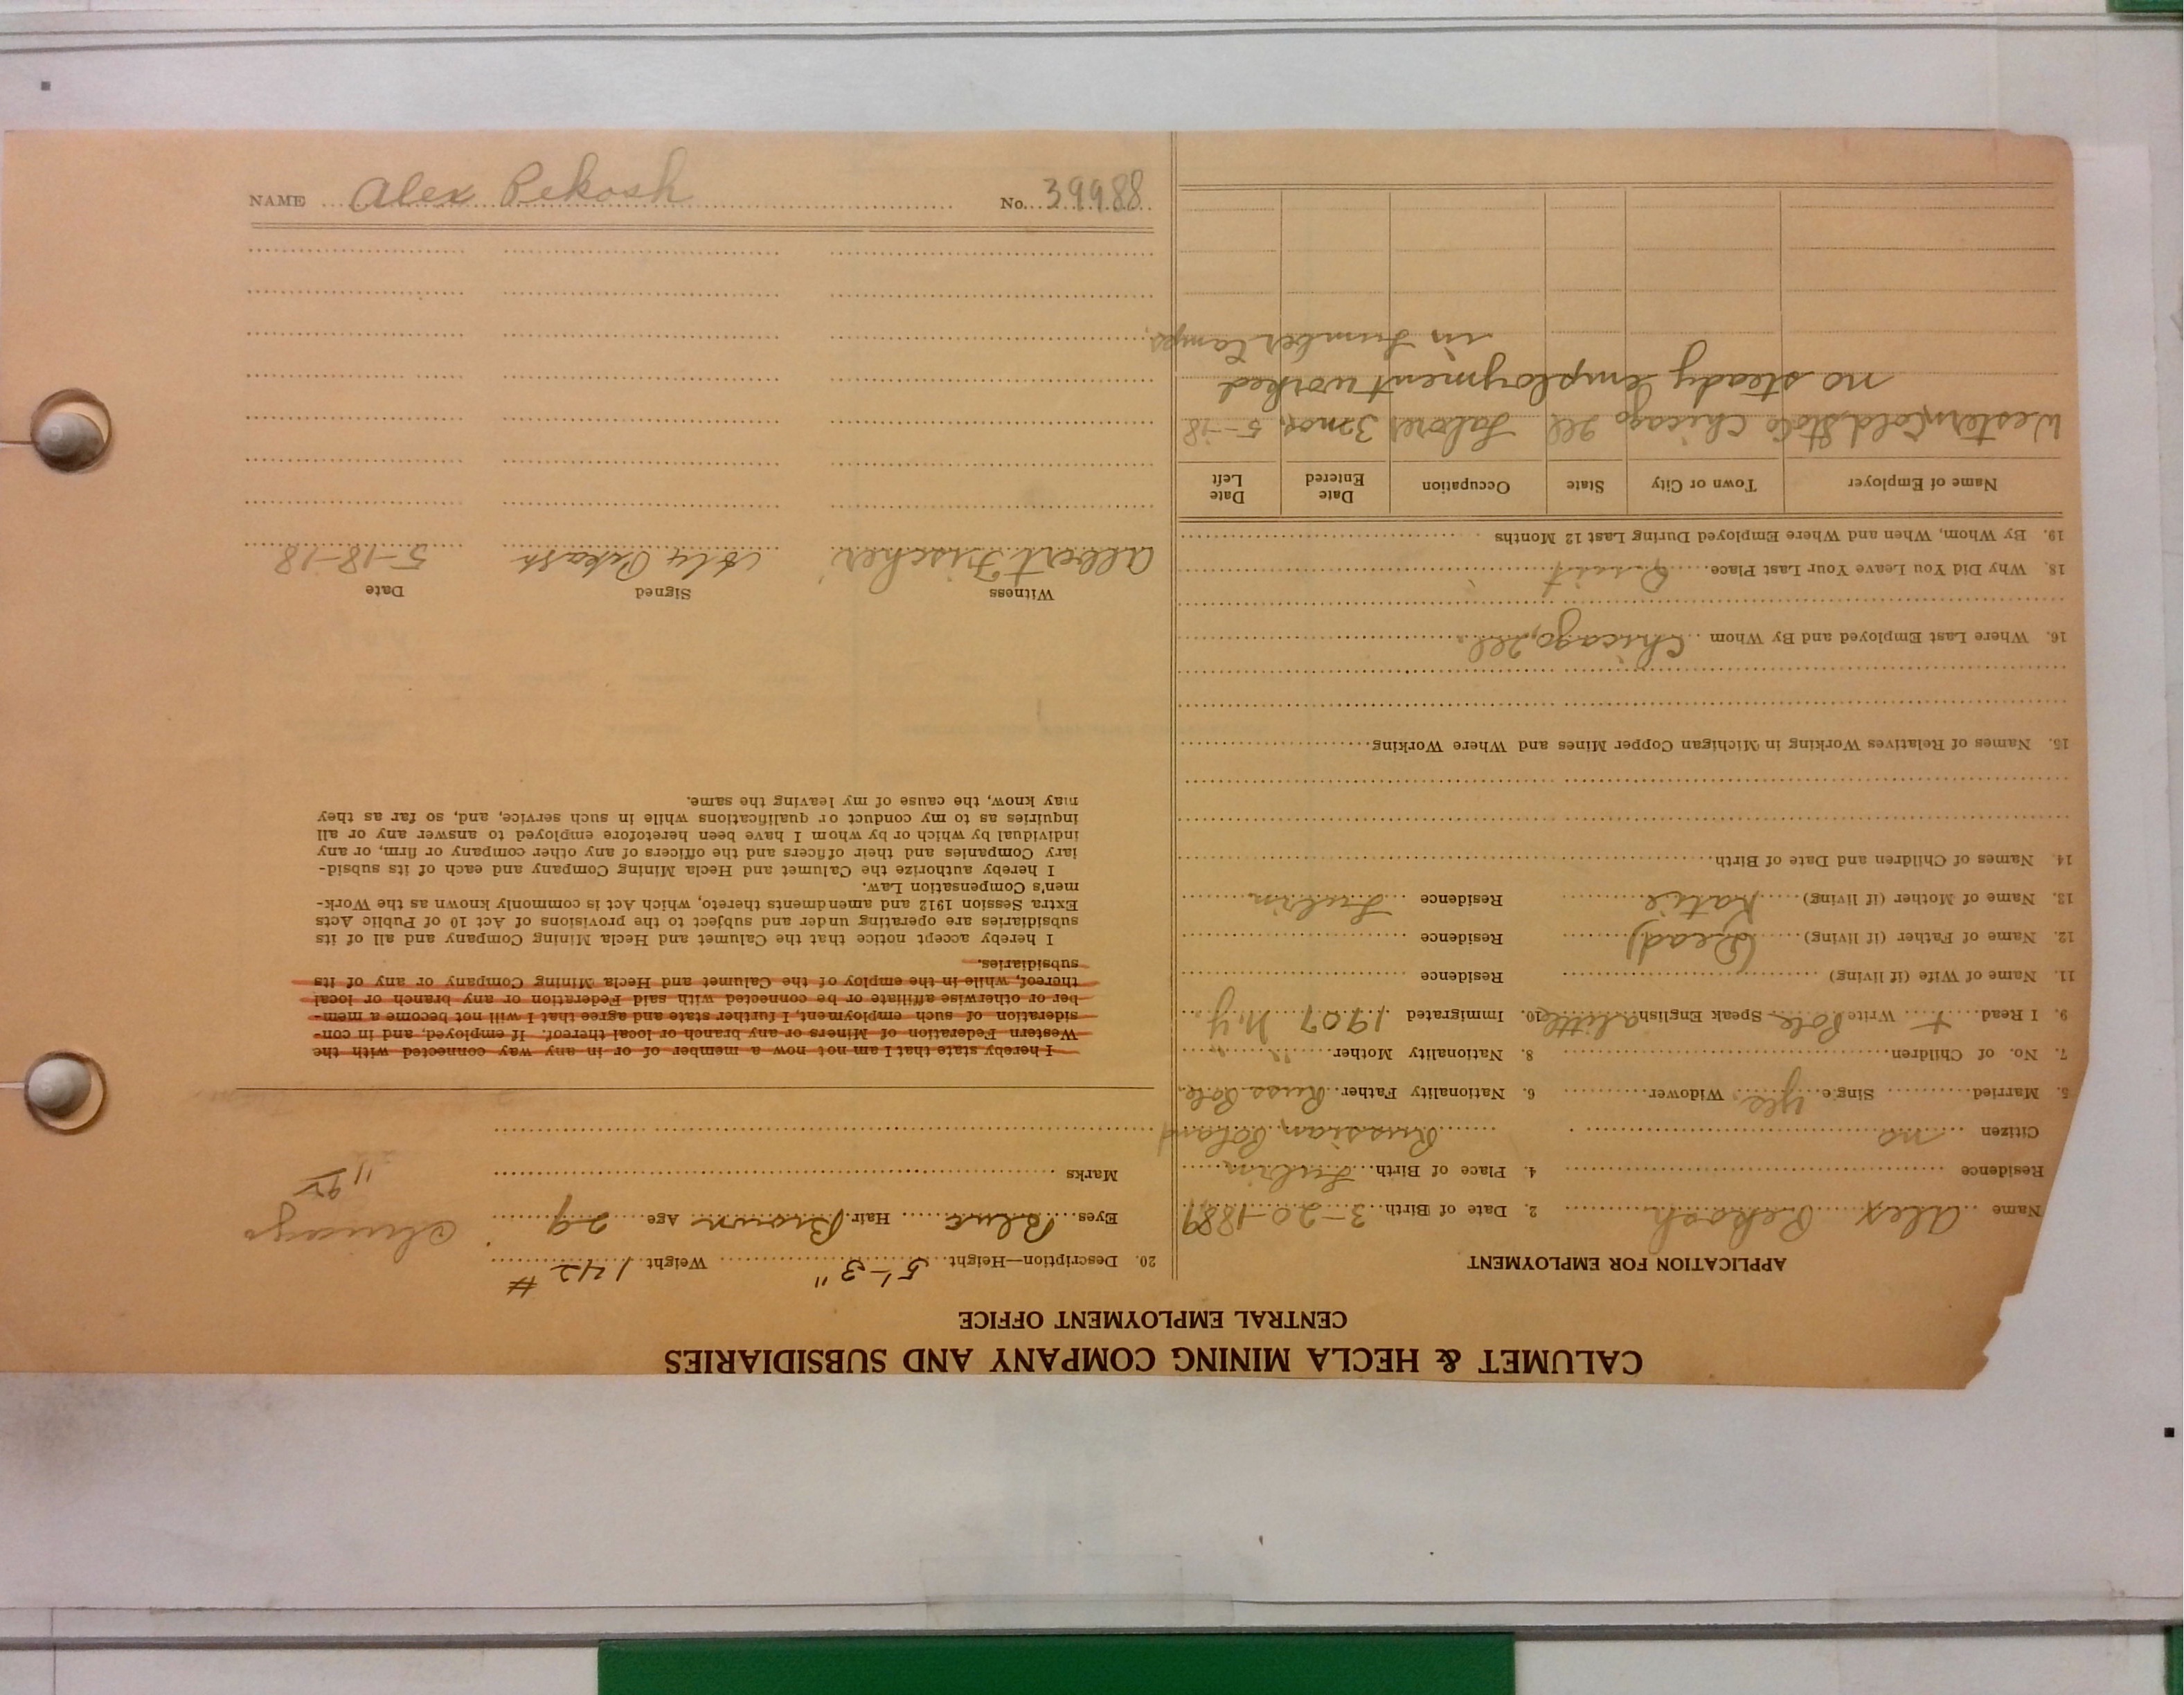 CALUMET & HECLA MINING COMPANY AND SUBSIDIARIES
CENTRAL EMPLOYMENT OFFICE
APPLICATION FOR EMPLOYMENT
Name Alex Pekosh 2. Date of Birth 3-20-1889
Residence 4. Place of Birth Lublin
Citizen no Russian Poland
5. Married Single yes Widower 6. Nationality Father Russ Pole
7. No. of Children 8. Nationality Mother " "
9. I Read + Write Pole Speak English a little 10. Immigrated 1907 N.Y.
11. Name of Wife (if living) Residence
12. Name of Father (if living) (Dead) Residence
13. Name of Mother (if living) Katie Residence Lublin
14. Names of Children and Date of Birth
15. Names of Relatives Working in Michigan Copper Mines and Where Working
16. Where Last Employed and By Whom Chicago, Ill.
18. Why Did You Leave Your Last Place Quit
19. By Whom, When and Where Employed During Last 12 Months
Name of Employer Town or City State Occupation Date Entered Date Left
Western Cold Sto Co Chicago Ill Laborer 3 mos. 5-18
no steady employment worked
in Lumber Camps.
20. Description—Height 5'-3" Weight 142 #
Eyes Blue Hair Brown Age 29
Chicago
Marks
I hereby state that I am not now a member of or in any way connected with the
Western Federation of Miners or any branch or local thereof. If employed, and in con-
sideration of such employment, I further state and agree that I will not become a mem-
ber or otherwise affiliate or be connected with said Federation or any branch or local
thereof, while in the employ of the Calumet and Hecla Mining Company or any of its
subsidiaries.
I hereby accept notice that the Calumet and Hecla Mining Company and all of its
subsidiaries are operating under and subject to the provisions of Act 10 of Public Acts
Extra Session 1912 and amendments thereto, which Act is commonly known as the Work-
men's Compensation Law.
I hereby authorize the Calumet and Hecla Mining Company and each of its subsid-
iary Companies and their officers and the officers of any other company or firm, or any
individual by which or by whom I have been heretofore employed to answer any or all
inquiries as to my conduct or qualifications while in such service, and, so far as they
may know, the cause of my leaving the same.
Witness Signed Date
Albert Fischer Alex Pekash 5-18-18
NAME Alex Pekosh No. 39988